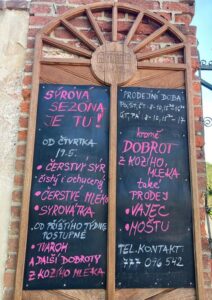 SÝROVÁ
SEZONA
JE TU!
OD ČTVRTKA
19.5.
• ČERSTVÝ SÝR
čistý i ochucený
• ČERSTVÉ MLÉKO
• SYROVÁTKA
OD PŘÍŠTÍHO TÝDNE
POSTUPNĚ
• TVAROH
A DALŠÍ DOBROTY
Z KOZÍHO MLÉKA
PRODEJNÍ DOBA
kromě
DOBROT
Z KOZÍHO
MLÉKA
také
PRODEJ
• VAJEC
• MOŠTU
TEL. KONTAKT:
777 096 542